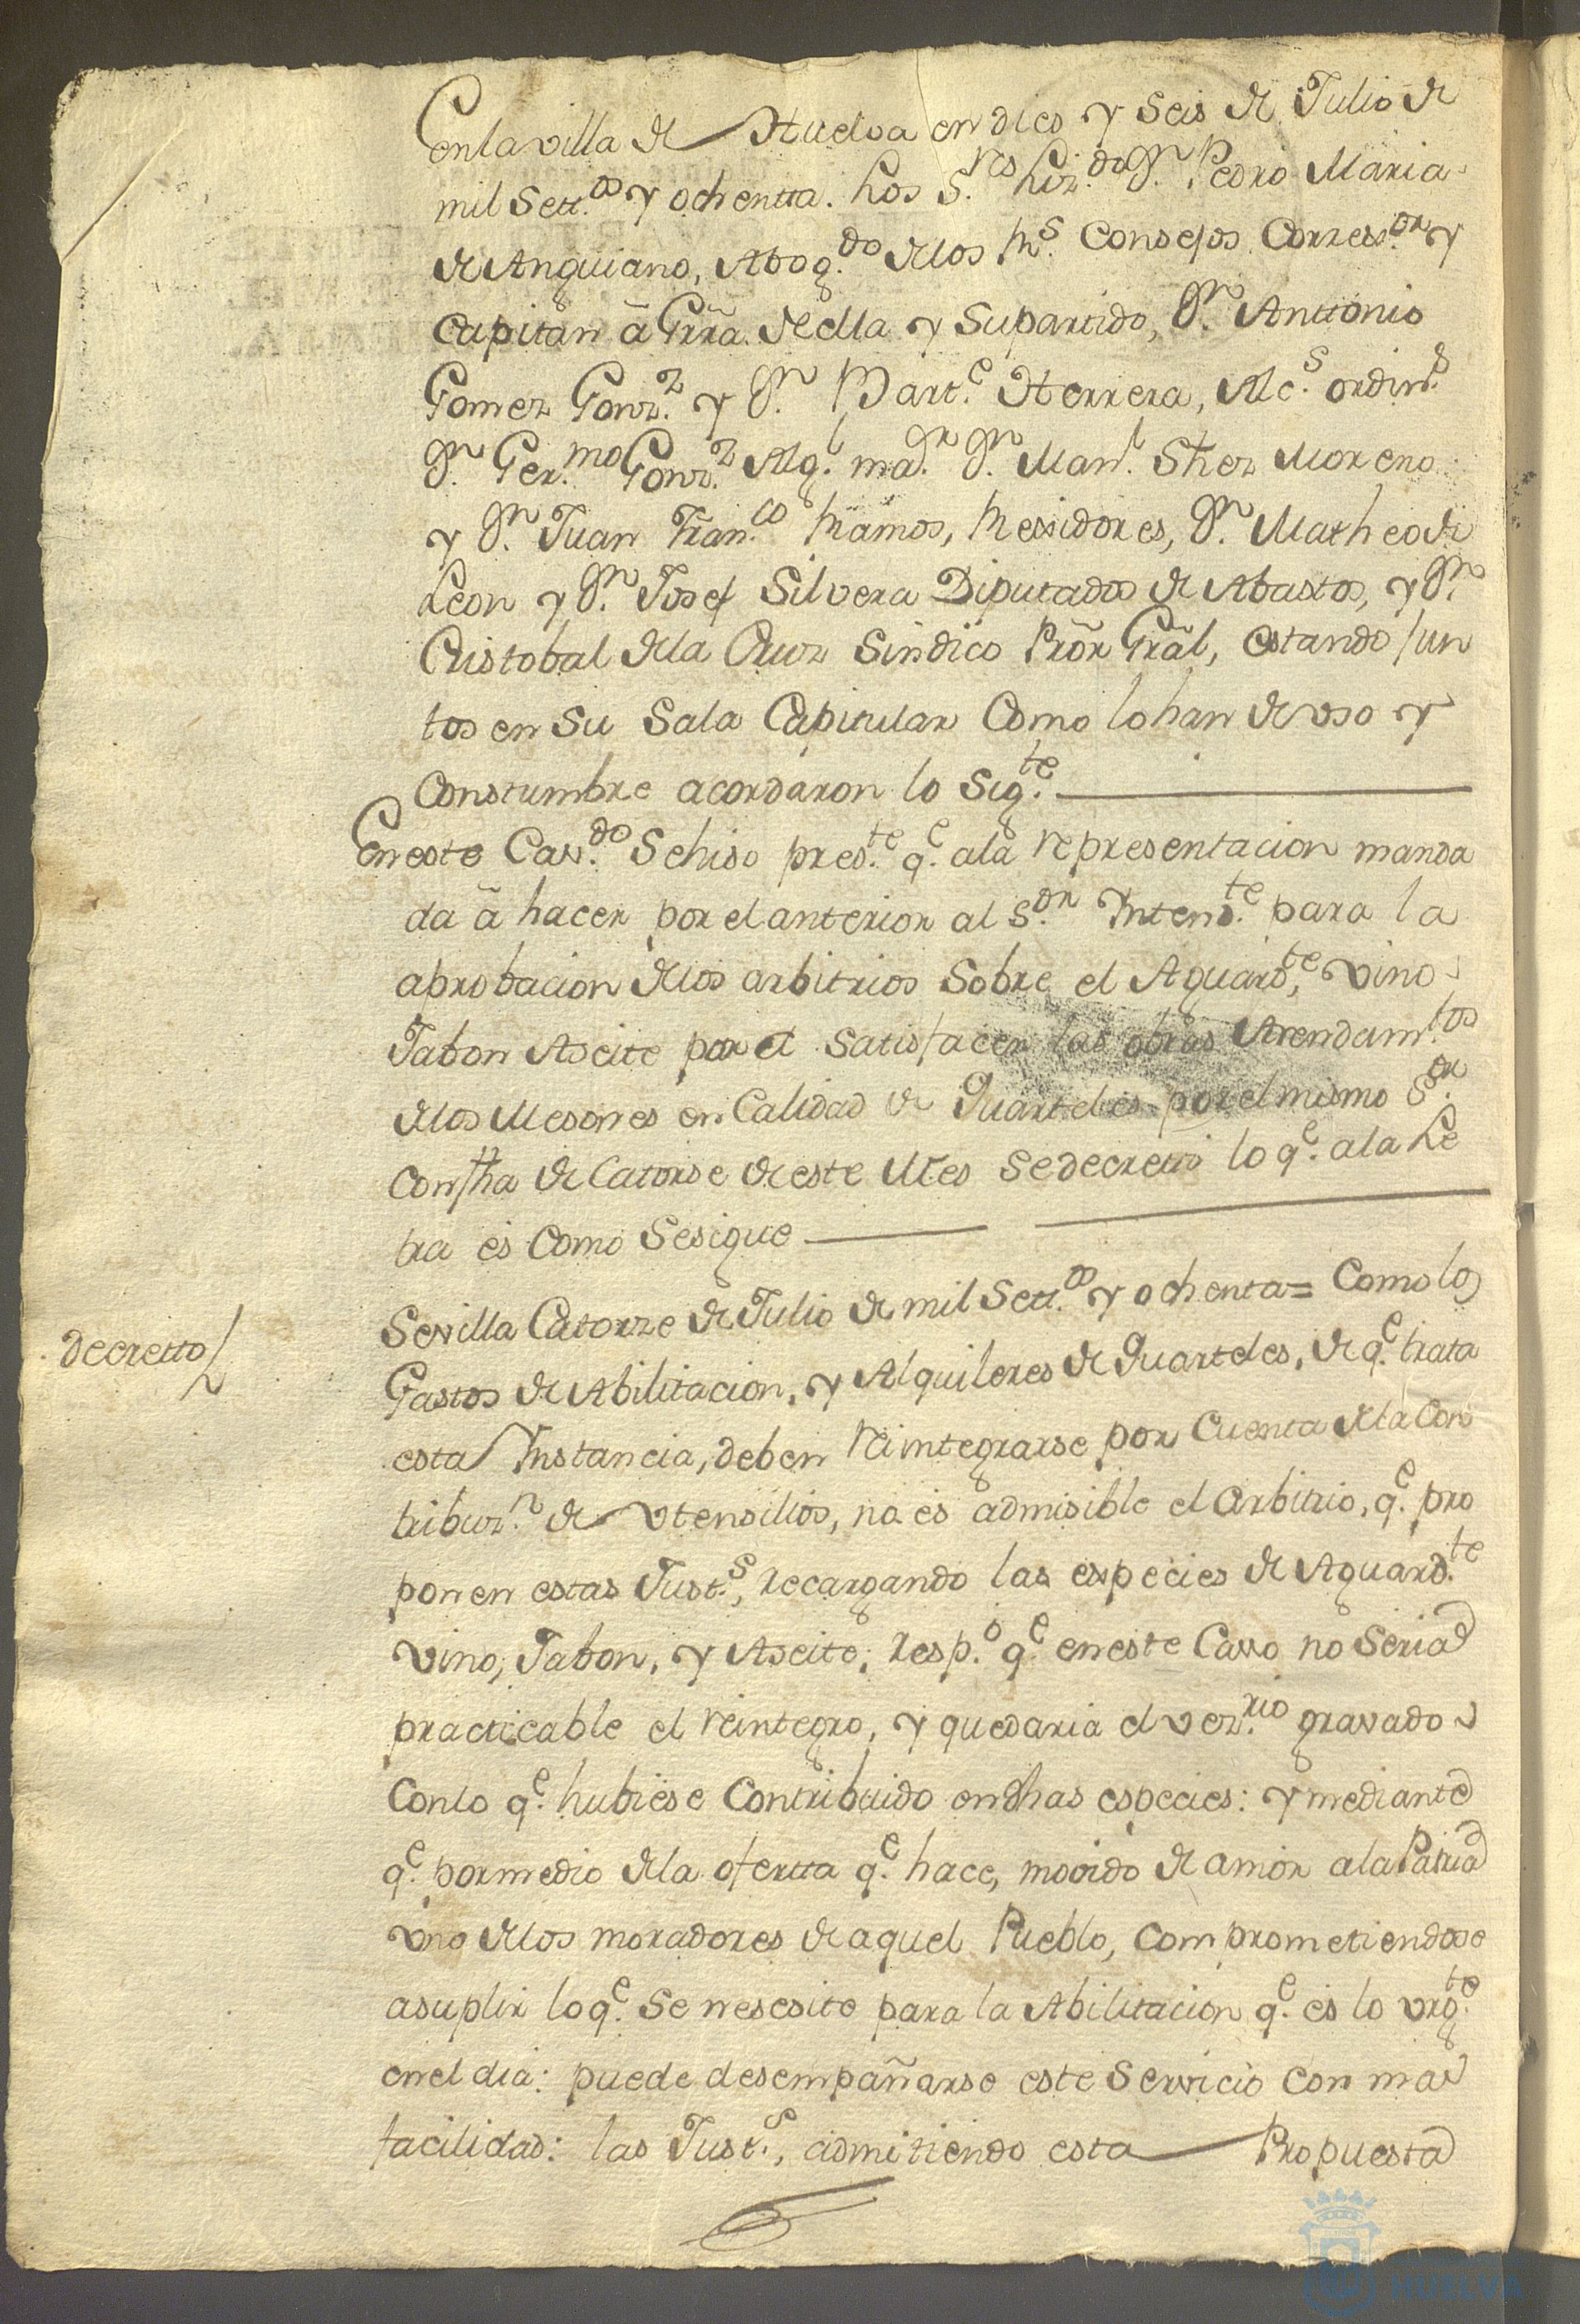 En la villa de Huelva en dies y seis de Julio de
mil sett.os y ochentta. Los S.res Liz.do Dn. Pedro Maria
de Anguiano, Abog.do de los Rs. Consejos Corress.or y
Capitan â Grra. de ella y su partido, Dn. Anttonio
Gomez Gonz.z y Dn. Bart.e Herrera, Alc.s ordin.s
Dn. Ger.mo Gonz.z Alg.l ma.r Dn. Man.l Shez Moreno
y Dn. Juan Fran.co Ramos, Rexidores, Dn. Matheo de
Leon y Dn. Josef Silvera Diputados de Abastos, y Dn.
Cristobal de la Cruz Sindico Prõr Grãl, estando jun
tos en su Sala Capitular Como lo han de uso y
Constumbre acordaron lo sig.te
En este Cav.do se hiso pres.te q.e a la representacion manda
da â hacer por el anterior al S.or Yntend.te para la
aprobacion de los arbitrios sobre el Aguard.te, vino
Jabon Aseite para satisfacer las obras Arendam.tos
de los Mesones en Calidad de Quarteles por el mismo S.or
Con fha de Catorse de este Mes se decretto lo q.e a la Le
tra es Como se sigue
decretto
Sevilla Catorze de Julio de mil Sett.os y ochenta = Como los
Gastos de Abilitacion, y Alquileres de Quarteles, de q.e trata
esta Ynstancia, deben reintegrarse por Cuenta de la Con
tribuz.n de Utensilios, no es admisible el arbitrio, q.e pro
ponen estas Just.s, recargando las especies de Aguard.te
vino, Jabon, y Aseite, resp.o q.e en este Caso no seria
practicable el reintegro, y quedaria el vez.rio gravado
Con lo q.e hubiese Contribuido en dhas especies: y mediante
q.e por medio de la ofertta q.e hace, movido de amor a la Patria
uno de los moradores de aquel Pueblo, comprometiendose
a suplir lo q.e se nesesite para la Abilitacion q.e es lo urg.te
en el dia: puede desempañarse este servicio con mas
facilidad: las Just.s, admitiendo esta Propuesta
HUELVA